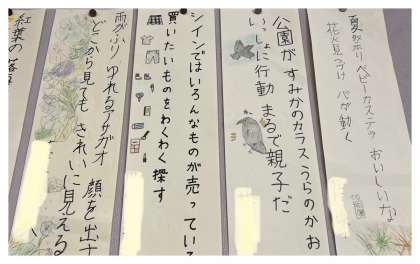 夏祭り ベビーカステラ おいしいな
花火見つけ が動く
公園が すみかのカラス うらのかお
いっしょに行動 まるで親子だ
シインではいろんなものが売っている
買いたいものをわくわく探す
雨がふり ゆれるアサガオ 顔を出す
どこから見ても きれいに見える
紅葉の